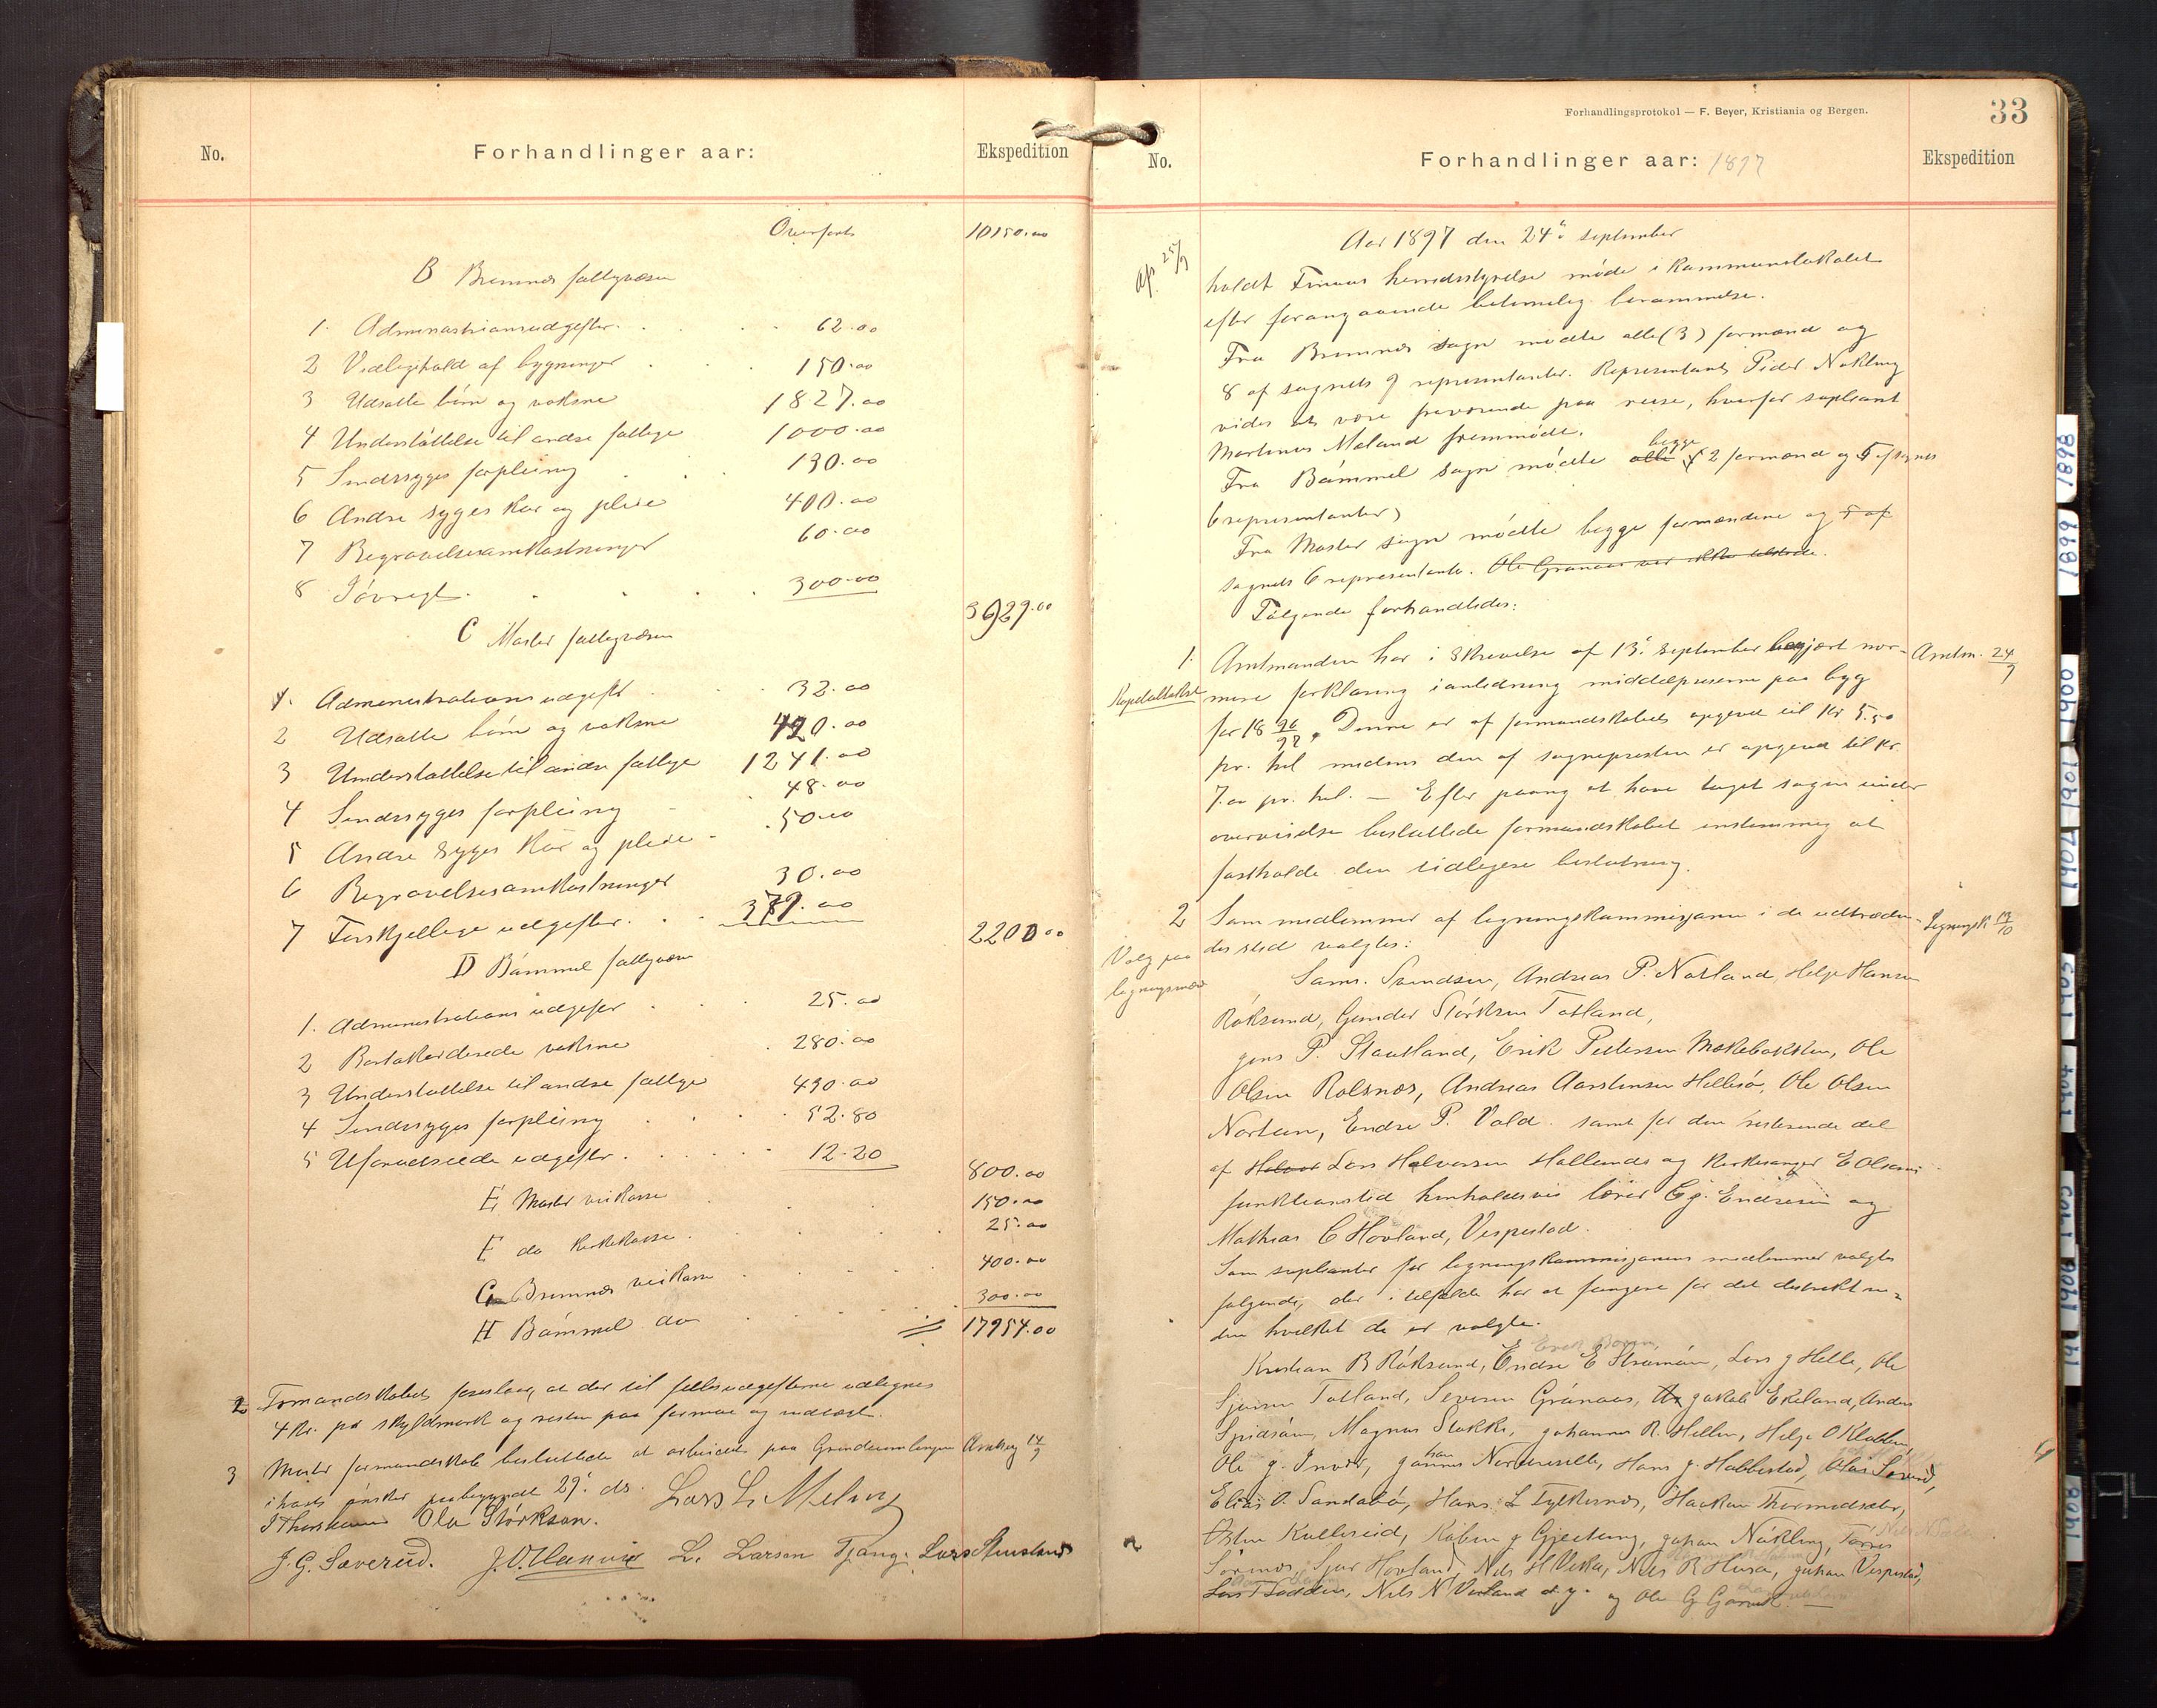 No.
Forhandlinger aar:
Ekspedition
Overført 10150.00
B Bremnes fattigvæsen
1. Administrationsudgifter. 62.00
2 Vedligehold af bygninger 150.00
3 Udsatte børn og voksne 1827.00
4 Understøttelse til andre fattige 1000.00
5 Sindssyges forpleining 130.00
6 Andre syges kur og pleie 400.00
7 Begravelsesomkostninger 60.00
8 Iøvrigt. 300.00
3929.00
C Moster fattigvæsen
1. Administrations udgifter 32.00
2 Udsatte børn og voksne 420.00
3 Understøttelse til andre fattige 1241.00
4 Sindssyges forpleining 48.00
5 Andre syges kur og pleie 50.00
6 Begravelsesomkostninger 30.00
7 Forskjellige udgifter. 379.00
2200.00
D Bømmel fattigvæsen
1. Administrations udgifter 25.00
2 Bortakorderede voksne 280.00
3 Understøttelse til andre fattige 430.00
4 Sindssyges forpleining 52.80
5 Uforudseede udgifter. 12.20
800.00
E Moster veikasse 150.00
F do kirkekasse. 25.00
G Bremnes veikasse 400.00
H Bømmel do 300.00
17954.00
2 Formandskabet foreslaar, at der til fællesudgifterne udlignes
4 Kr. pr skyldmark og resten paa formue og indtægt.
3 Moster formandskab besluttede at arbeidet paa Grindeimlingen
i høst ønskes paabegyndt 29. ds.
Lars L. Meling
Ola Størksen.
J. G. Sæverud. L. Larsen Tjang. Lars Stensland
Forhandlingsprotokol — F. Beyer, Kristiania og Bergen.
33
No.
Forhandlinger aar: 1897
Ekspedition
Aar 1897 den 24de september
25/9
holdt Finnaas herredsstyrelse møde i kommunelokalet
efter forangaaende betimelig berammelse.
Fra Bremnes sogn mødte alle (3) formænd og
8 af sognets 9 representanter. Representant Peder Nøkling
vides at være fraværende paa reise, hvorfor supleant
Martinus Meland fremmøde.
Fra Bømmel sogn mødte alle begge 2 formænd og 5 af sognets
6 representanter
Fra Moster sogn mødte begge formændene og 5 af
sognets 6 representanter. Ole Grønaas var ikke tilstede.
Følgende forhandledes:
1. Amtmanden har i skrivelse af 13de september begjært nær- Amtm. 24/9
Kapitaltakst
mere forklaring i anledning middelpriserne paa byg
for 18 96/97. Denne er af formandskabet opgivet til Kr 5.50
pr. hel medens den af sognepresten er opgivet til kr.
7.00 pr. hel. — Efter paany at have taget sagen under
overveielse besluttede formandskabet enstemmig at
fastholde den tidligere beslutning.
2 Som medlemmer af ligningskommisjonen i de udtræden-
Valg paa
ligningsmænd
des sted valgtes:
Sams. Svendsen, Andreas P. Notland, Helge Hansen
Røksund, Gunder Størksen Totland,
Jens P. Stautland, Erik Pedersen Mækebakken, Ole
Olsen Rolsnæs, Andreas Aarstensen Hellesø, Ole Olsen
Nortun, Endre P. Vold. samt for den resterende del
af Lars Halvorsen Hallemds og kirkesanger E Olsens
funktionstid henholdsvis lærer G. J. Endresen og
Mathias C Hovland, Vespestad.
Som supleanter for ligningskommisjonens medlemmer valgtes
følgende, der i tilfælde har at fungere for det distrikt in-
den hvilket de er valgte.
Kristian B Røksund, Endre E Strømøen, Lars J Helle, Ole
Sjursen Totland, Severin Grønaas, Jakob Ekeland, Anders
Spidsøen, Magnus Stokke, Johannes R. Hellen, Helge O Klubben,
Ole J. Johannes Hans J. Habbestad,
Elias O. Sandabø, Hans L Fylkesnes, Haakon Thormodsæter,
Østen Kallevaag, Kolben J Gjeitung, Johan Nøkling, Tørres
Sørnes, Sjur Hovland, Nils H Vika, Nils R Husa, Johan Vespestad,
Lars T Lodden, Nils N Vorland d.y. og Ole G
1898
1899
1900
1901
1902
1903
1904
1905
1906
1908